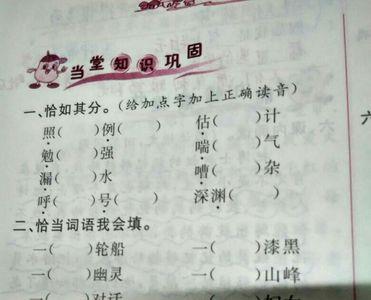 当堂知识巩固
一、恰如其分。(给加点字加上正确读音)
照( )例( ) 估( )计
勉( )强 喘( )气
漏( )水 嘈( )杂
呼( )号( ) 深渊( )
二、恰当词语我会填。
一( )轮船 一( )漆黑
一( )幽灵 一( )山峰
一( )对话
六